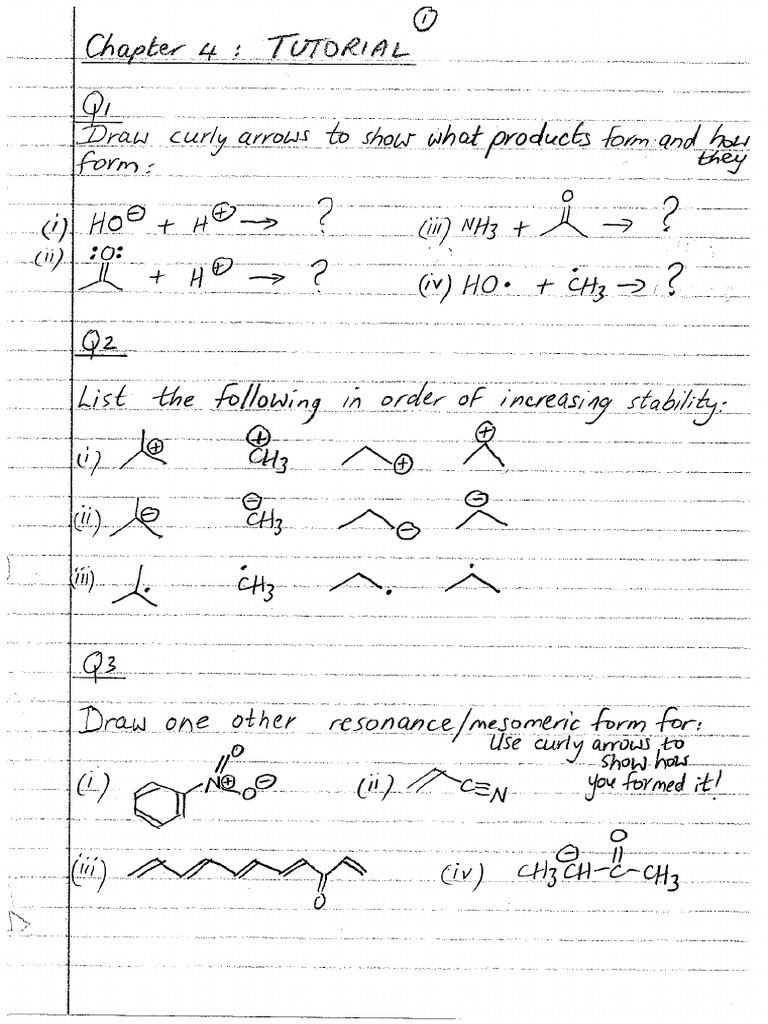 ①
Chapter 4 : TUTORIAL
Q1
Draw curly arrows to show what products form and how they
form:
(i) HO⊖ + H⊕ → ? (iii) NH3 + O → ?
(ii) :O: + H⊕ → ? (iv) HO• + ĊH3 → ?
Q2
List the following in order of increasing stability:
(i) ⊕ ⊕CH3 ⊕ ⊕
(ii) ⊖ ⊖CH3 ⊖ ⊖
(iii) • ĊH3 • •
Q3
Draw one other resonance/mesomeric form for:
Use curly arrows to
show how
you formed it!
(i) O N⊕ O⊖ (ii) C≡N
(iii) O (iv) CH3⊖CH-C-CH3 O